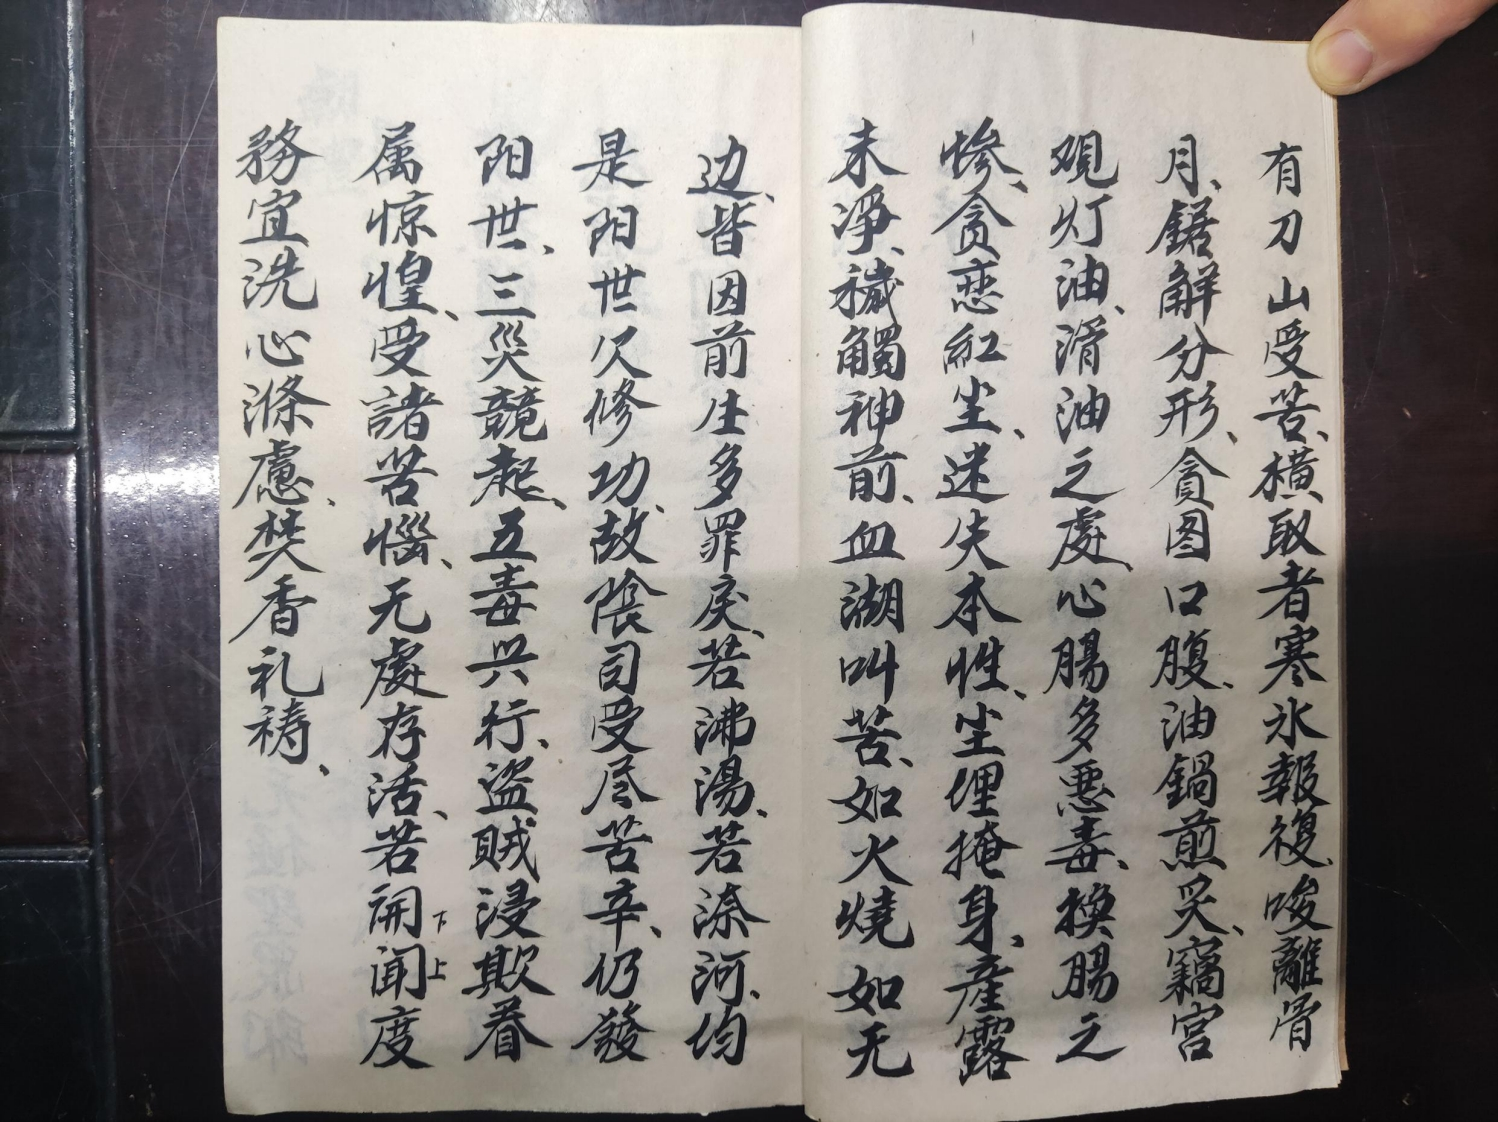 有刀山受苦、横取者寒氷報復、唆離骨
月、鋸解分形、貪图口腹、油鍋煎炙、竊宮
观灯油、滑油之處、心腸多惡毒、換腸之
惨、貪恋紅尘、迷失本性、尘埋掩身、産露
未淨、穢觸神前、血湖叫苦、如火燒如无
边、皆因前生多罪戾、若沸湯、若渿河、均
是阳世欠修功、故陰司受尽苦辛、仍發
阳世、三災競起、五毒兴行、盜賊浸欺眷
属惊惶、受諸苦惱、无處存活、若開聞度
下上
務宜洗心滌慮、焚香礼祷、